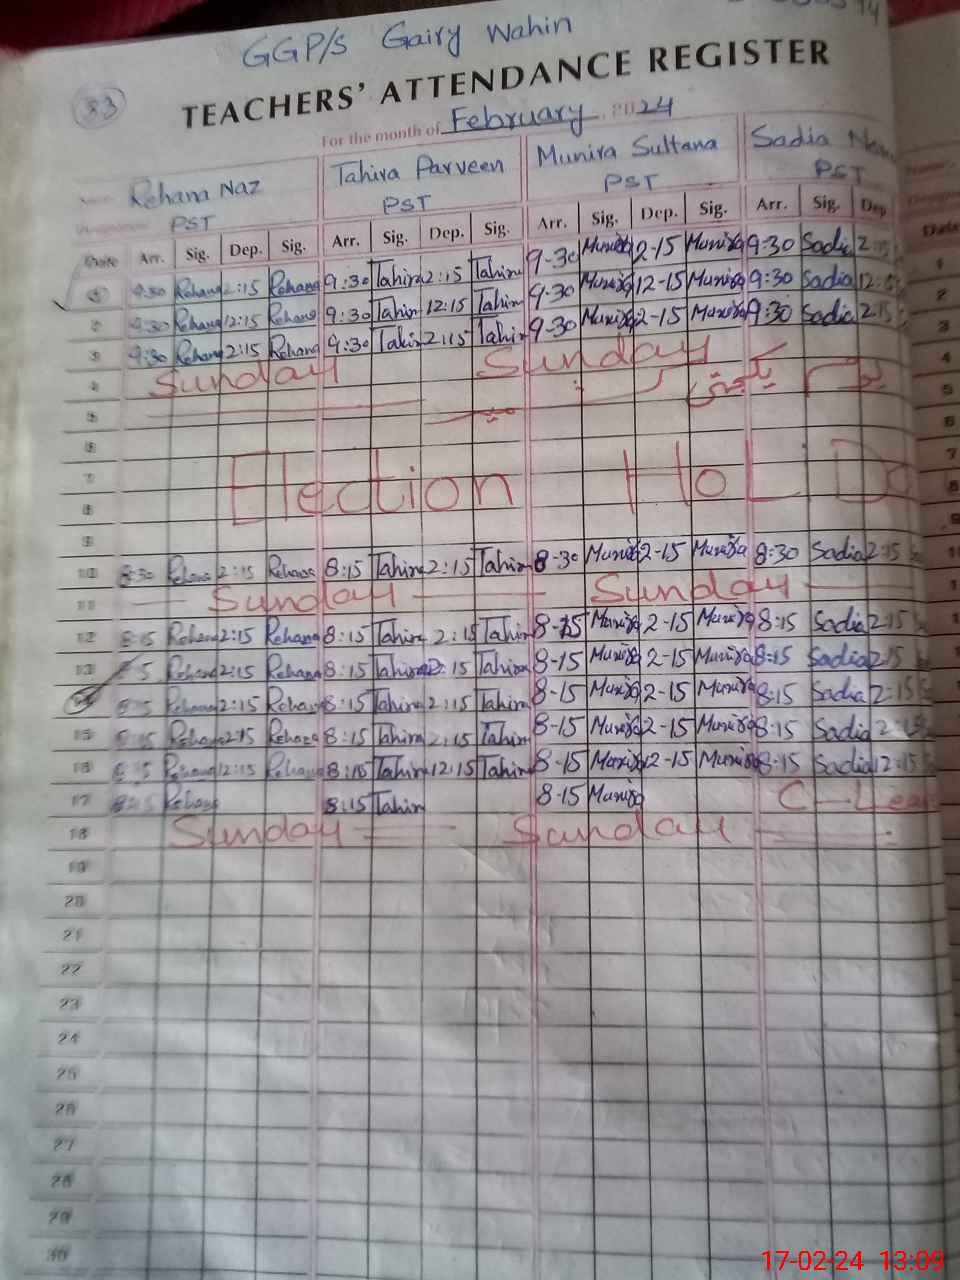 GGP/S Gairy Wahin
33
TEACHERS' ATTENDANCE REGISTER
For the month of February 2024
Rehana Naz Tahira Parveen Munira Sultana Sadia
PST PST PST PST
Date Arr. Sig. Dep. Sig. Arr. Sig. Dep. Sig. Arr. Sig. Dep. Sig. Arr. Sig. Dep Date
1 9:30 Rehana 2:15 Rehana 9:30 Tahira 2:15 Tahira 9-30 Munira 2-15 Munira 9:30 Sadia 2:15 1
2 9:30 Rehana 12:15 Rehana 9:30 Tahira 12:15 Tahira 9-30 Munira 12-15 Munira 9:30 Sadia 12:15 2
3 9:30 Rehana 2:15 Rehana 9:30 Tahira 2:15 Tahira 9-30 Munira 2-15 Munira 9:30 Sadia 2:15 3
4 Sunday Sunday 4
5 یوم یکجہتی کشمیر 5
6 6
7 Election HoLD 7
8 8
9 9
10 8:30 Rehana 2:15 Rehana 8:15 Tahira 2:15 Tahira 8-30 Munira 2-15 Munira 8:30 Sadia 2:15
11 Sunday Sunday
12 8:15 Rehana 2:15 Rehana 8:15 Tahira 2:15 Tahira 8-15 Munira 2-15 Munira 8:15 Sadia 2:15
13 Rehana 2:15 Rehana 8:15 Tahira 2:15 Tahira 8-15 Munira 2-15 Munira 8:15 Sadia 2:15
Rehana 2:15 Rehana 8:15 Tahira 2:15 Tahira 8-15 Munira 2-15 Munira 8:15 Sadia 2:15
15 8:15 Rehana 2:15 Rehana 8:15 Tahira 2:15 Tahira 8-15 Munira 2-15 Munira 8:15 Sadia 2:15
16 Rehana 12:15 Rehana 8:15 Tahira 12:15 Tahira 8-15 Munira 12-15 Munira 8:15 Sadia 12:15
17 8:15 Rehana 8:15 Tahira 8-15 Munira C-Lea
18 Sunday Sunday
19
20
21
22
23
24
25
26
27
28
29
30
17-02-24 13:09